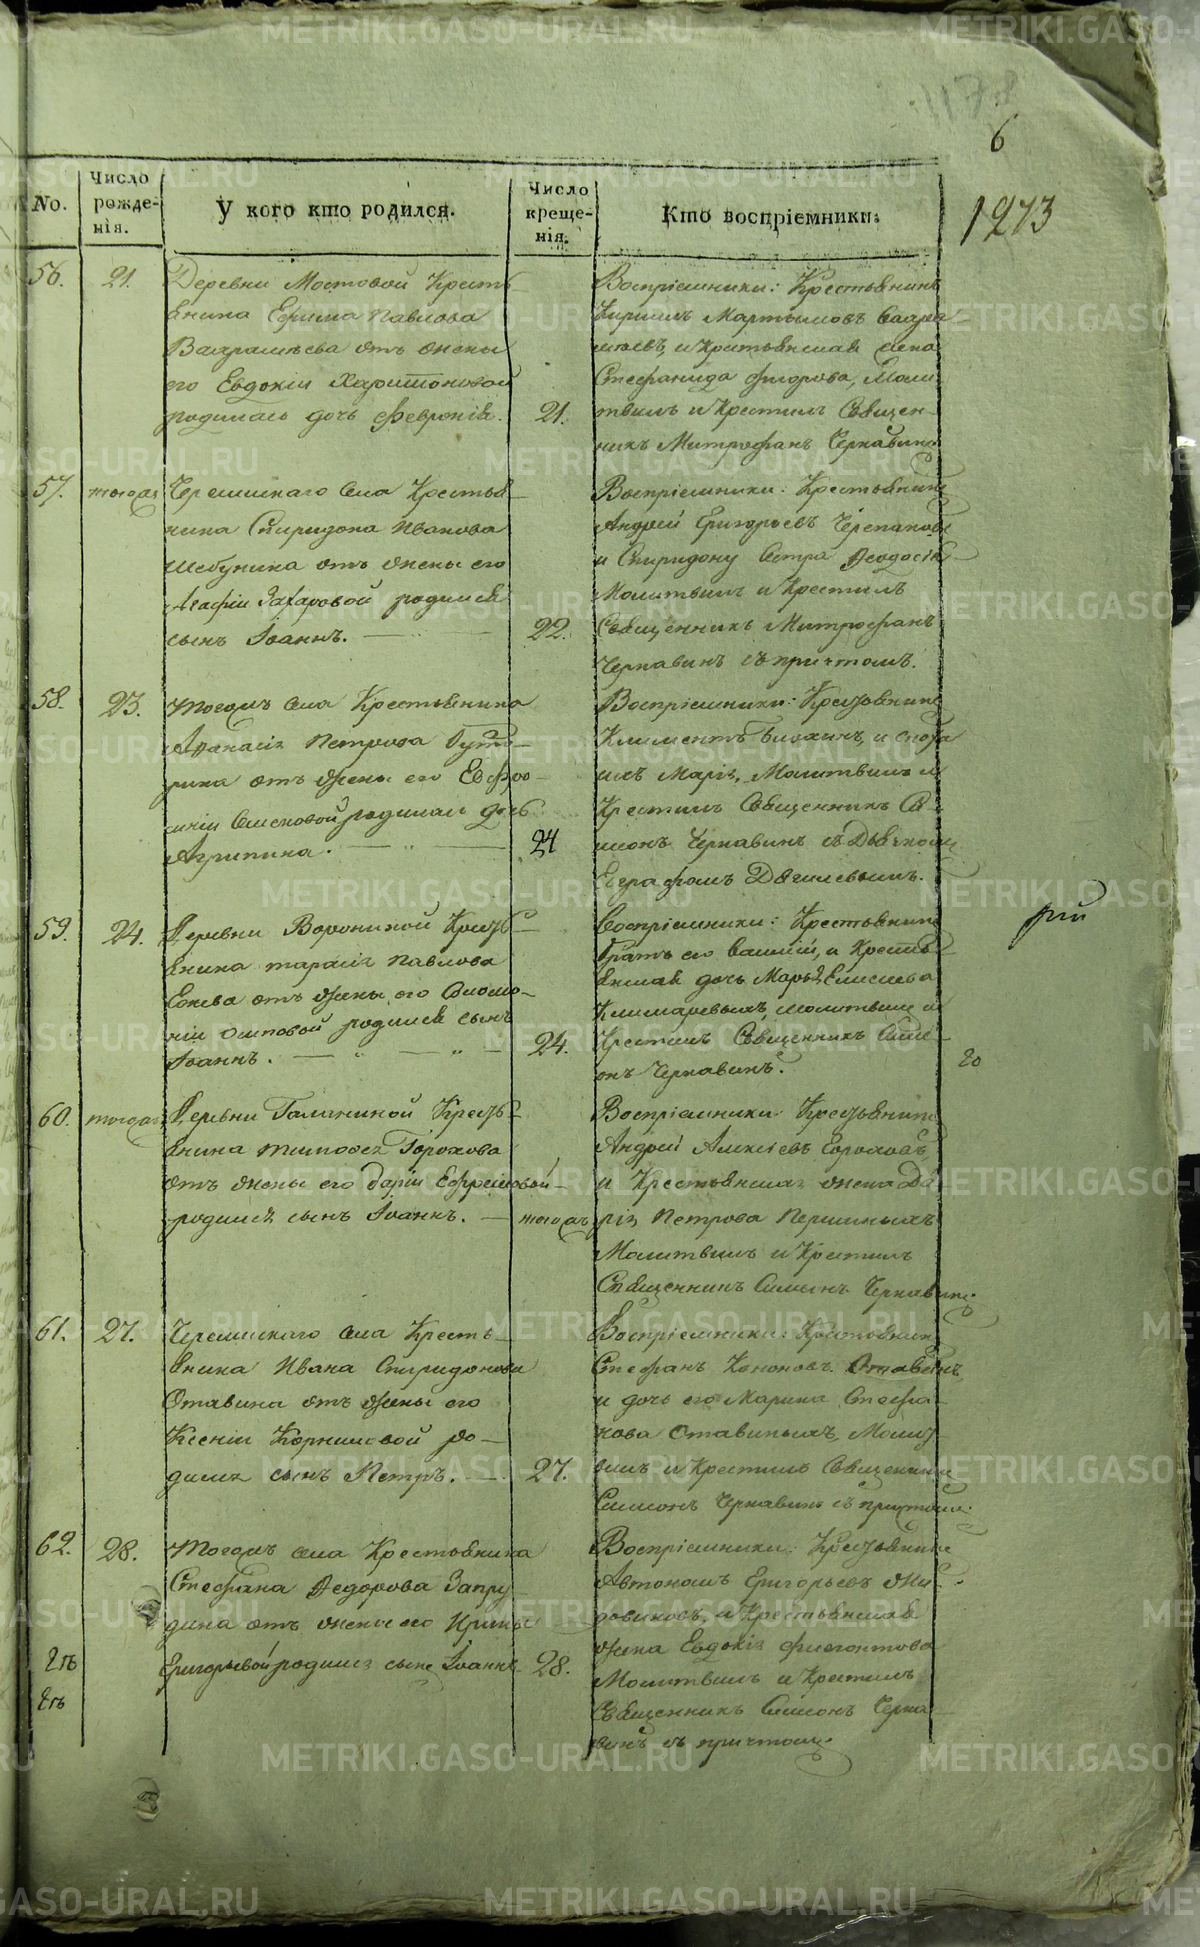 6
1273
No.
Число рожде-
нія.
У кого кто родился.
Число
креще-
нія.
Кто воспріемники.
56.
21.
Деревни Мостовой Кресть
янина Ефима Павлова
Вахрамѣева отъ жены
его Евдокіи Харитоновой
родилась дочь Февронія.
21.
Воспріемники: Крестьянинъ
Кирилъ Мартымовъ
и Крестьянская жена
Стефанида Моли
твилъ и Крестилъ Священ-
никъ Митрофанъ Чернавинъ
57.
тогож
Черемискаго села Крестья
нина Спиридона Иванова
Шебунина отъ жены его
Агафіи Захаровой родился
сынъ Іоаннъ.
22.
Воспріемники: Крестьянинъ
Андрей Григорьевъ Черепановъ
и Спиридону Сестра Ѳеодосія
Молитвилъ и Крестилъ
Священникъ Митрофанъ
Чернавинъ съ причтомъ.
58.
23.
Тогожъ села Крестьянина
Афанасія Петрова
отъ жены его Евфро-
синіи родилась дочь
Агрипина.
24
Воспріемники: Крестьянинъ
Климентъ и сноха
ихъ Марія, Молитвилъ и
Крестилъ Священникъ Си-
меонъ Чернавинъ съ Дьячкомъ
Евграфомъ
59.
24.
Деревни Ворониной Кресть-
янина Тарасія Павлова
отъ жены его Соломо-
ніи Осиповой родился сынъ
Іоаннъ.
24.
Воспріемники: Крестьянинъ
братъ его Василій, и Кресть-
янская дочь Марья Елисеева
молитвилъ и
Крестилъ Священникъ Симе-
онъ Чернавинъ.
60.
тогож
Деревни Кресть-
янина Тимофея Горохова
отъ жены его Даріи Ефремовой
родился сынъ Іоаннъ.
тогож
Воспріемники: Крестьянинъ
Андрей Алексѣевъ Гороховъ
и Крестьянская жена Да
рія Петрова Першиныхъ
Молитвилъ и Крестилъ
Священникъ Симеонъ Чернавинъ.
61.
27.
Черемискаго села Кресть-
янина Ивана Спиридонова
Отавина отъ жены его
Ксеніи Корниловой ро-
дился сынъ Петръ.
27.
Воспріемники: Крестьянинъ
Стефанъ Кононовъ Отавинъ
и дочь его Марина Стефа-
нова Отавиныхъ, Молит-
вилъ и Крестилъ Священникъ
Симеонъ Чернавинъ съ причтомъ.
62.
28.
Тогожъ села Крестьянина
Стефана Ѳедорова Запру-
дина отъ жены его Ирины
Григорьевой родился сынъ Іоаннъ
28.
Воспріемники: Крестьянинъ
Автономъ Григорьевъ Жи-
довиновъ, и Крестьянская
жена Евдокія
Молитвилъ и Крестилъ
Священникъ Симеонъ Черна-
винъ съ причтомъ.
METRIKI.GASO-URAL.RU